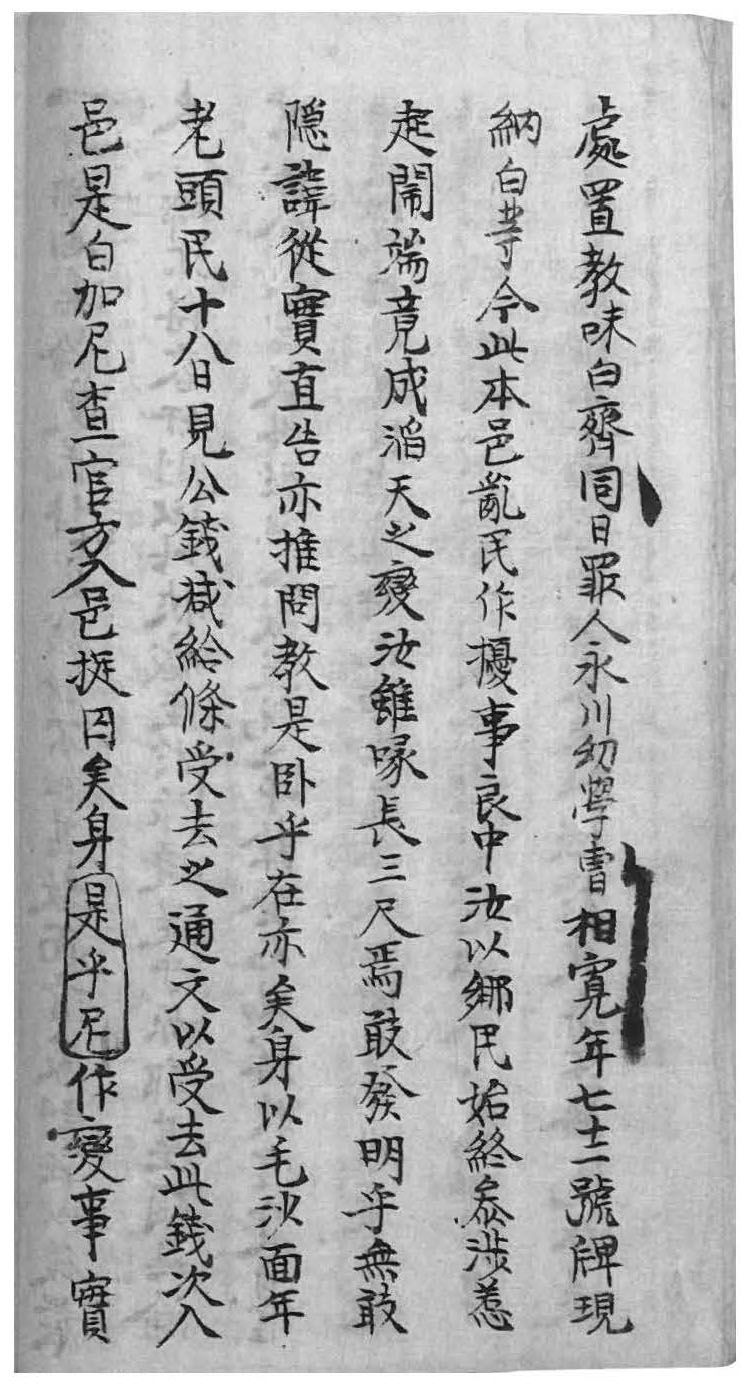 處置教味白齊同日罪人永川幼學曺相寬年七十二號牌現
納白等今此本邑亂民作擾事良中汝以鄕民始終參涉惹
起鬧端竟成滔天之變汝雖喙長三尺焉敢發明乎無敢
隱諱從實直告亦推問教是卧乎在亦矣身以毛沙面年
老頭民十八日見公錢减給條受去之通文以受去此錢次入
邑是白加尼查官方入邑捉囚矣身是乎尼作變事實